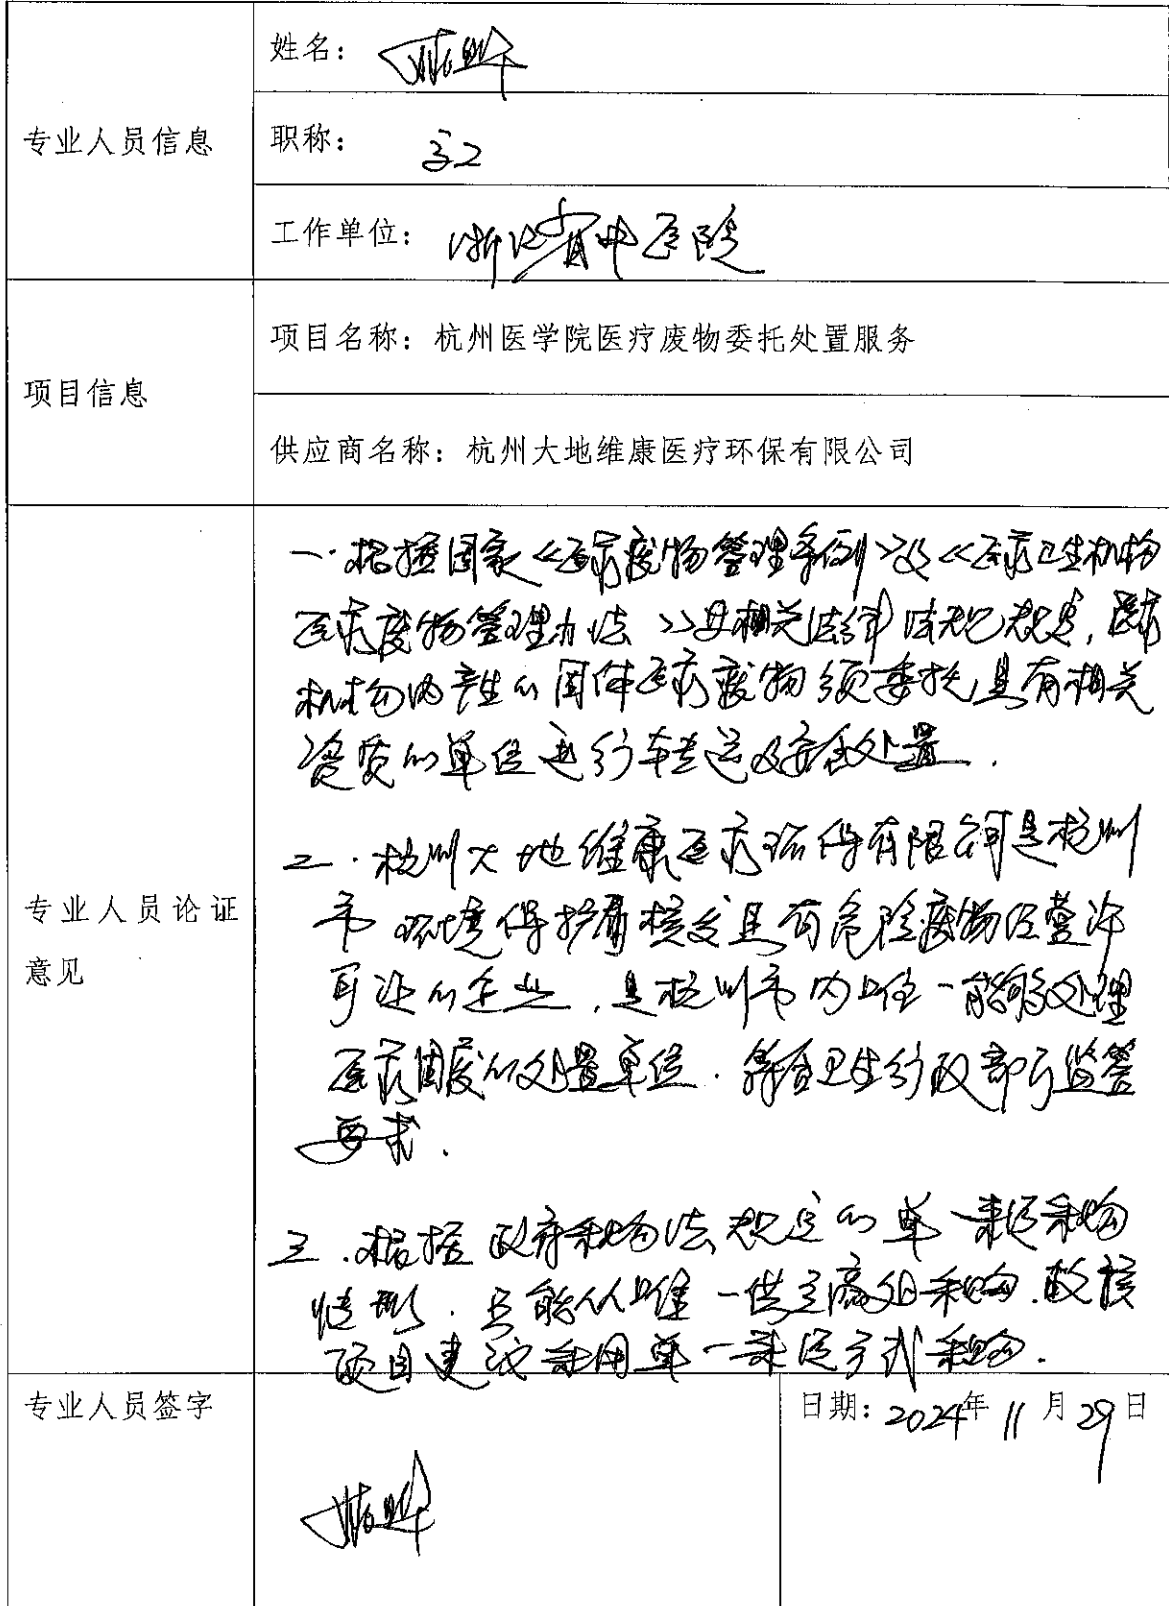 姓名：
专业人员信息
职称： 高工
工作单位： 浙江省中医院
项目信息
项目名称：杭州医学院医疗废物委托处置服务
供应商名称：杭州大地维康医疗环保有限公司
一.根据国家《医疗废物管理条例》及《医疗卫生机构
医疗废物管理办法》等相关法律法规规定，医疗
机构内产生的固体医疗废物须委托具有相关
资质的单位进行转运及安全处置.
二.杭州大地维康医疗环保有限公司是杭州
市环境保护局核发具有危险废物经营许
可证的企业，是杭州市内唯一能够处理
专业人员论证
意见
医疗固废的处置单位.符合卫生行政部门监管
要求.
三.根据政府采购法规定的单一来源采购
情形.只能从唯一供应商处采购.故该
项目建议采用单一来源方式采购.
专业人员签字
日期：2024年11月29日